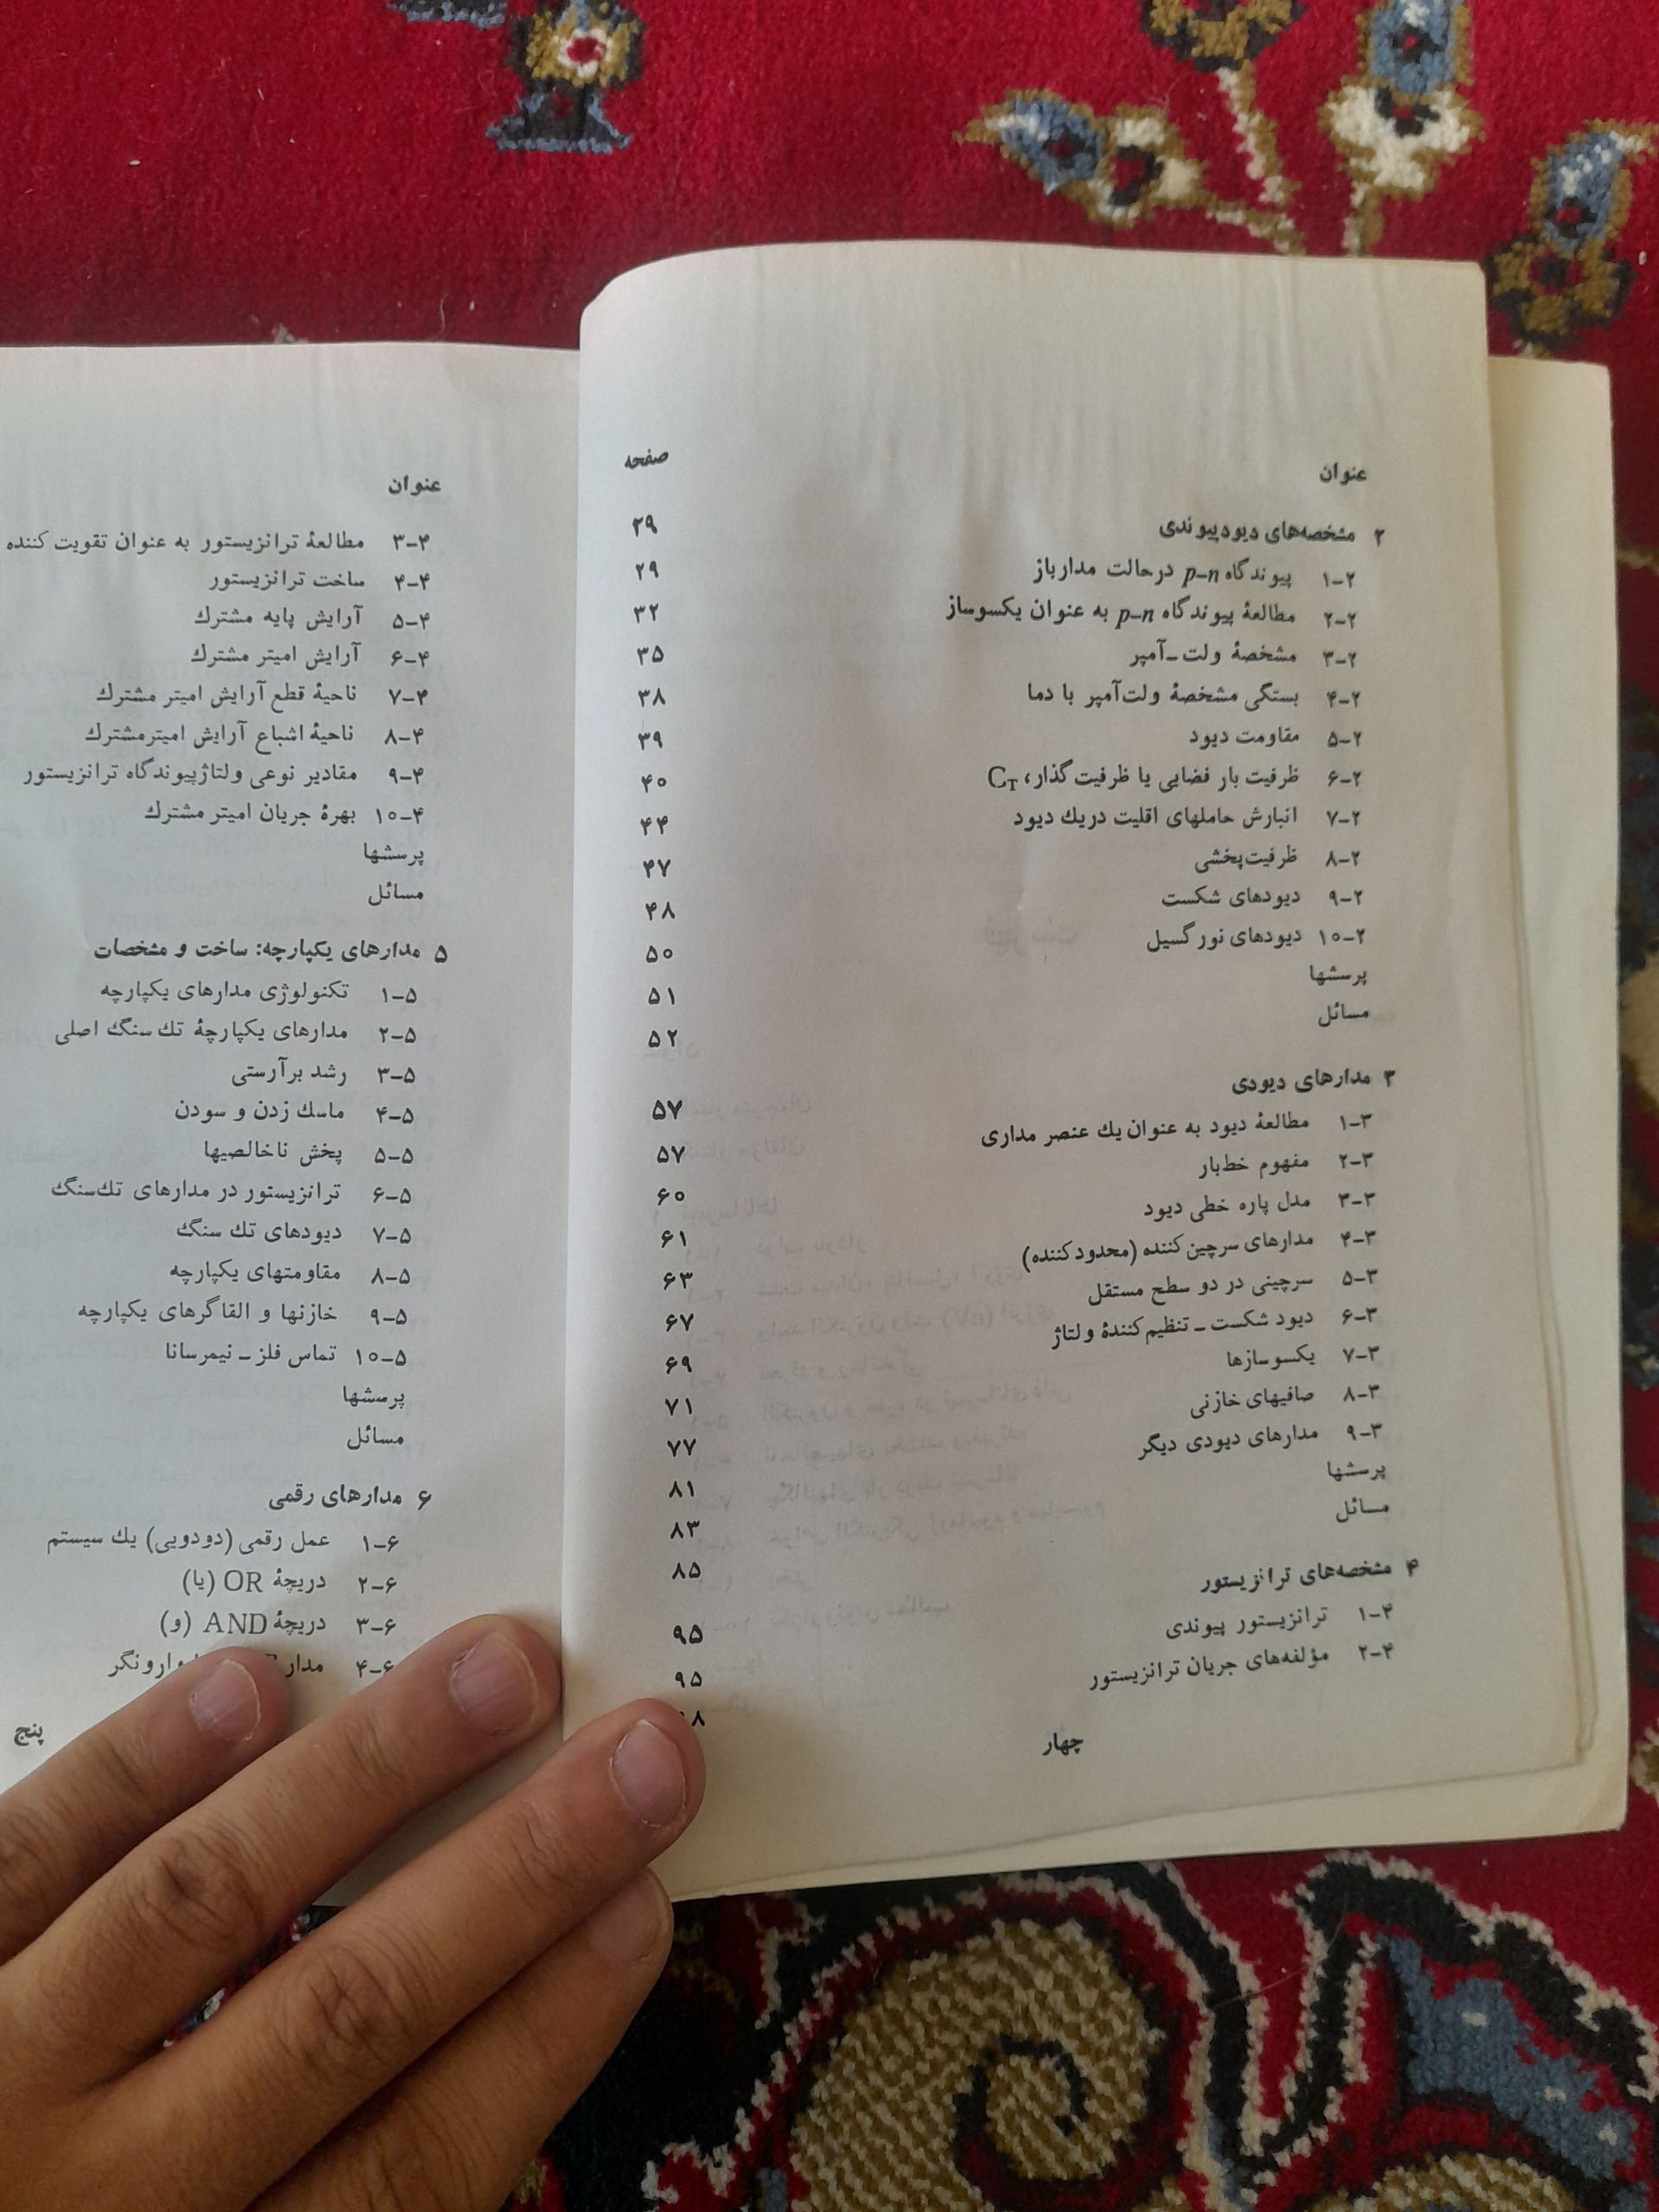 عنوان صفحه
۲ مشخصه‌های دیود پیوندی ۲۹
۱-۲ پیوندگاه p-n در حالت مدار باز ۲۹
۲-۲ مطالعهٔ پیوندگاه p-n به عنوان یکسوساز ۳۲
۳-۲ مشخصهٔ ولت-آمپر ۳۵
۴-۲ بستگی مشخصهٔ ولت‌آمپر با دما ۳۸
۵-۲ مقاومت دیود ۳۹
۶-۲ ظرفیت بار فضایی یا ظرفیت گذار، CT ۴۰
۷-۲ انبارش حاملهای اقلیت در یك دیود ۴۴
۸-۲ ظرفیت پخشی ۴۷
۹-۲ دیودهای شکست ۴۸
۱۰-۲ دیودهای نور گسیل ۵۰
پرسشها ۵۱
مسائل ۵۲
۳ مدارهای دیودی ۵۷
۱-۳ مطالعهٔ دیود به عنوان یك عنصر مداری ۵۷
۲-۳ مفهوم خط‌بار ۶۰
۳-۳ مدل پاره خطی دیود ۶۱
۴-۳ مدارهای سرچین کننده (محدود کننده) ۶۳
۵-۳ سرچینی در دو سطح مستقل ۶۷
۶-۳ دیود شکست - تنظیم کنندهٔ ولتاژ ۶۹
۷-۳ یکسوسازها ۷۱
۸-۳ صافیهای خازنی ۷۷
۹-۳ مدارهای دیودی دیگر ۸۱
پرسشها ۸۳
مسائل ۸۵
۴ مشخصه‌های ترانزیستور ۹۵
۱-۴ ترانزیستور پیوندی ۹۵
۲-۴ مؤلفه‌های جریان ترانزیستور
چهار
عنوان
۳-۴ مطالعهٔ ترانزیستور به عنوان تقویت کننده
۴-۴ ساخت ترانزیستور
۵-۴ آرایش پایه مشترك
۶-۴ آرایش امیتر مشترك
۷-۴ ناحیهٔ قطع آرایش امیتر مشترك
۸-۴ ناحیهٔ اشباع آرایش امیتر مشترك
۹-۴ مقادیر نوعی ولتاژ پیوندگاه ترانزیستور
۱۰-۴ بهرهٔ جریان امیتر مشترك
پرسشها
مسائل
۵ مدارهای یکپارچه: ساخت و مشخصات
۱-۵ تکنولوژی مدارهای یکپارچه
۲-۵ مدارهای یکپارچهٔ تك سنگ اصلی
۳-۵ رشد برآرستی
۴-۵ ماسك زدن و سودن
۵-۵ پخش ناخالصیها
۶-۵ ترانزیستور در مدارهای تك‌سنگ
۷-۵ دیودهای تك سنگ
۸-۵ مقاومتهای یکپارچه
۹-۵ خازنها و القاگرهای یکپارچه
۱۰-۵ تماس فلز - نیمرسانا
پرسشها
مسائل
۶ مدارهای رقمی
۱-۶ عمل رقمی (دودویی) یك سیستم
۲-۶ دریچهٔ OR (یا)
۳-۶ دریچهٔ AND (و)
۴-۶ مدار وارونگر
پنج